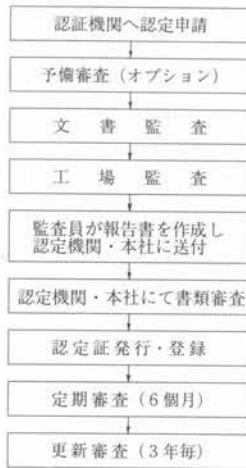 認証機関へ認定申請
予備審査(オプション)
文書監査
工場監査
監査員が報告書を作成し
認定機関・本社に送付
認定機関・本社にて書類審査
認定証発行・登録
定期審査(6個月)
更新審査(3年毎)